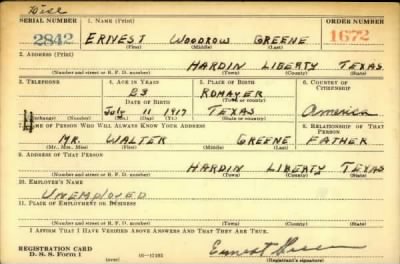 Disc
SERIAL NUMBER 1. NAME (Print) ORDER NUMBER
2842 ERNEST WOODROW GREENE 1672
(First) (Middle) (Last)
2. ADDRESS (Print)
HARDIN LIBERTY TEXAS
(Number and street or R. F. D. number) (Town) (County) (State)
3. TELEPHONE 4. AGE IN YEARS 5. PLACE OF BIRTH 6. COUNTRY OF CITIZENSHIP
23 ROMAYER
DATE OF BIRTH (Town or county)
July 11 1917 TEXAS America
(Exchange) (Number) (Mo.) (Day) (Yr.) (State or country)
7. NAME OF PERSON WHO WILL ALWAYS KNOW YOUR ADDRESS 8. RELATIONSHIP OF THAT PERSON
MR. WALTER GREENE FATHER
(Mr., Mrs., Miss) (First) (Middle) (Last)
9. ADDRESS OF THAT PERSON
HARDIN LIBERTY TEXAS
(Number and street or R. F. D. number) (Town) (County) (State)
10. EMPLOYER'S NAME
UNEMPLOYED
11. PLACE OF EMPLOYMENT OR BUSINESS
(Number and street or R. F. D. number) (Town) (County) (State)
I AFFIRM THAT I HAVE VERIFIED ABOVE ANSWERS AND THAT THEY ARE TRUE.
REGISTRATION CARD Ernest Greene
D. S. S. Form 1 (over) (Registrant's signature)